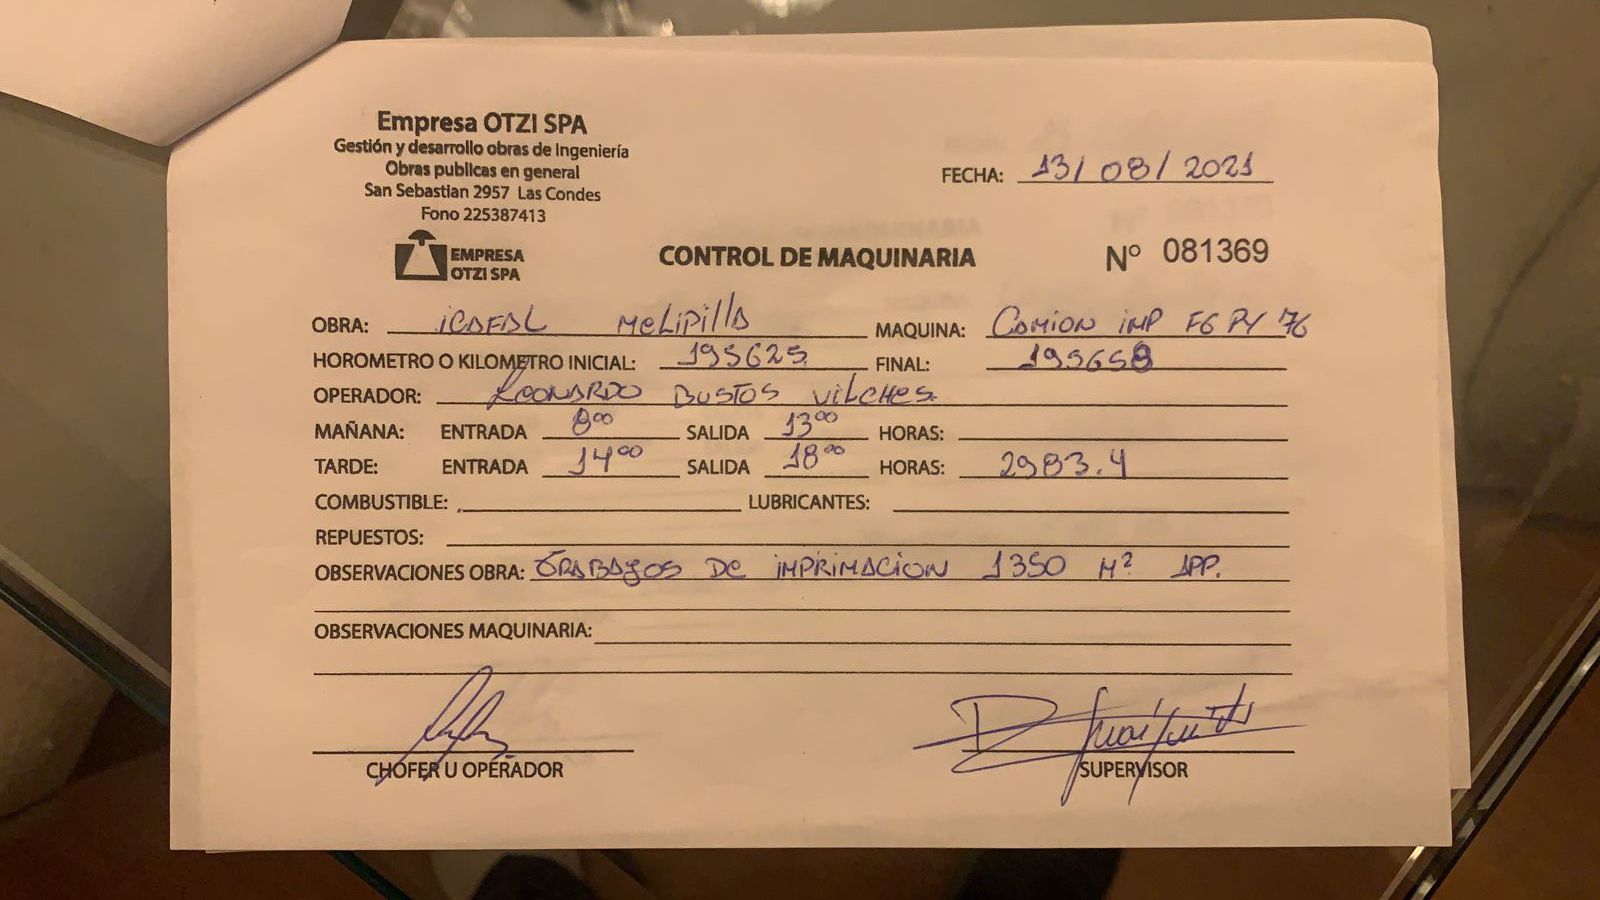 Empresa OTZI SPA
Gestión y desarrollo obras de Ingeniería
Obras publicas en general
San Sebastian 2957 Las Condes
Fono 225387413
FECHA: 13/08/2021
EMPRESA
OTZI SPA
CONTROL DE MAQUINARIA
Nº 081369
OBRA: icafal Melipilla MAQUINA: Camion imp FGPY 76
HOROMETRO O KILOMETRO INICIAL: 195625 FINAL: 195658
OPERADOR: Leonardo Bustos Vilches.
MAÑANA: ENTRADA 8⁰⁰ SALIDA 13⁰⁰ HORAS:
TARDE: ENTRADA 14⁰⁰ SALIDA 18⁰⁰ HORAS: 2983.4
COMBUSTIBLE: LUBRICANTES:
REPUESTOS:
OBSERVACIONES OBRA: Trabajos de imprimacion 1350 M² app.
OBSERVACIONES MAQUINARIA:
CHOFER U OPERADOR
SUPERVISOR